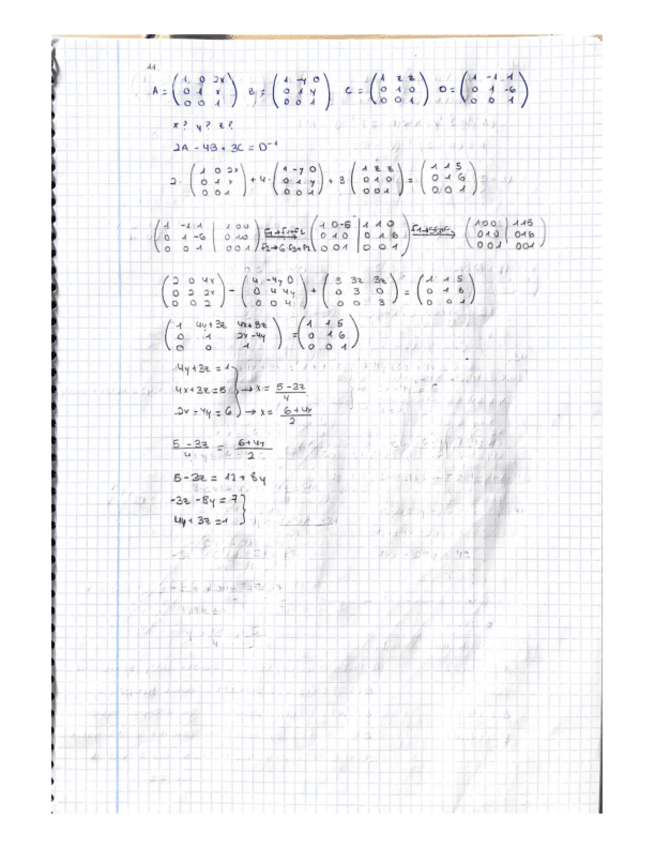 11.
A = ( 1 0 2x ; 0 1 x ; 0 0 1 ) B = ( 1 -y 0 ; 0 1 y ; 0 0 1 ) C = ( 1 z z ; 0 1 0 ; 0 0 1 ) D = ( 1 -1 1 ; 0 1 -6 ; 0 0 1 )
x? y? z?
2A - 4B + 3C = D⁻¹
2· ( 1 0 2x ; 0 1 x ; 0 0 1 ) + 4· ( 1 -y 0 ; 0 1 y ; 0 0 1 ) + 3 ( 1 z z ; 0 1 0 ; 0 0 1 ) = ( 1 1 5 ; 0 1 6 ; 0 0 1 )
( 1 -1 1 | 1 0 0 ; 0 1 -6 | 0 1 0 ; 0 0 1 | 0 0 1 ) → ( 1 0 -5 | 1 1 0 ; 0 1 0 | 0 1 6 ; 0 0 1 | 0 0 1 ) → ( 1 0 0 | 1 1 5 ; 0 1 0 | 0 1 6 ; 0 0 1 | 0 0 1 )
( 2 0 4x ; 0 2 2x ; 0 0 2 ) - ( 4 -4y 0 ; 0 4 4y ; 0 0 4 ) + ( 3 3z 3z ; 0 3 0 ; 0 0 3 ) = ( 1 1 5 ; 0 1 6 ; 0 0 1 )
( 1 4y+3z 4x+3z ; 0 1 2x-4y ; 0 0 1 ) = ( 1 1 5 ; 0 1 6 ; 0 0 1 )
4y+3z = 1
4x+3z = 5 → x = 5-3z / 4
2x-4y = 6 → x = 6+4y / 2
5-3z / 4 = 6+4y / 2
5-3z = 12+8y
-3z-8y = 7
4y+3z = 1